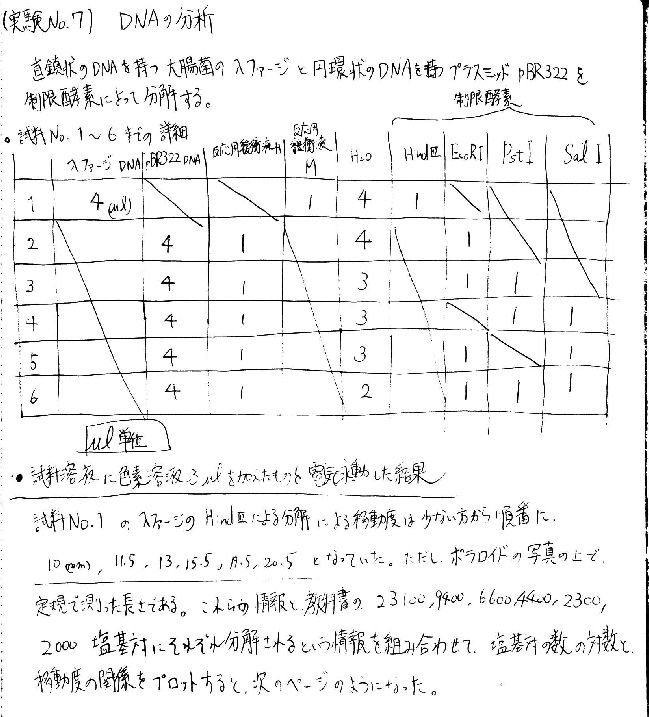 (実験No.7) DNAの分析
直鎖状のDNAを持つ大腸菌のλファージと円環状のDNAを持つプラスミッドpBR322を
制限酵素によって分解する。
制限酵素
・試料No.1〜6までの詳細
λファージDNA pBR322 DNA 反応用緩衝液H 反応用緩衝液M H2O HindⅢ EcoRI PstI Sal I
1 4(μl) 1 4 1
2 4 1 4 1
3 4 1 3 1 1
4 4 1 3 1 1
5 4 1 3 1 1
6 4 1 2 1 1 1
μl単位
・試料溶液に色素溶液3μlを加えたものを電気泳動した結果
試料No.1のλファージのHindⅢによる分解による移動度は少ない方から順番に、
10(mm), 11.5, 13, 15.5, 19.5, 20.5 となっていた。ただし、ポラロイドの写真の上で、
定規で測った長さである。これらの情報と、教科書の 23100, 9400, 6600, 4400, 2300,
2000 塩基対にそれぞれ分解されるという情報を組み合わせて、塩基対の数の対数と、
移動度の関係をプロットすると、次のページのようになった。